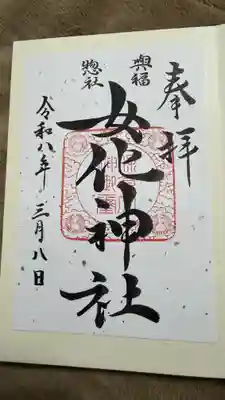 奉拝
興福
惣社
女化神社
令和八年三月八日